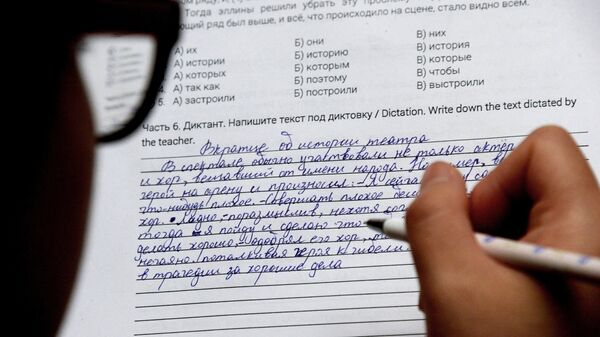 Тогда эллины решили убрать эту
ющий ряд был выше, и всё, что происходило на сцене, стало видно всем.
А) их Б) они В) них
А) истории Б) историю В) история
А) которых Б) которым В) которые
А) так как Б) поэтому В) чтобы
5. А) застроили Б) построили В) выстроили
Часть 6. Диктант. Напишите текст под диктовку / Dictation. Write down the text dictated by
the teacher.
Вкратце об истории театра
В спектакле обычно участвовали не только актёр
и хор, вещавший от имени народа.
герой на арену и произносил: - Я сейча
что-нибудь плохое. - Совершать плохое бес
хор. - Ладно, - поразмыслив, нехотя
тогда я пойду и сделаю что-
делать хорошо! Одобрял его хор,
нечаянно поталкивая героя к гибели
в трагедии за хорошие дела